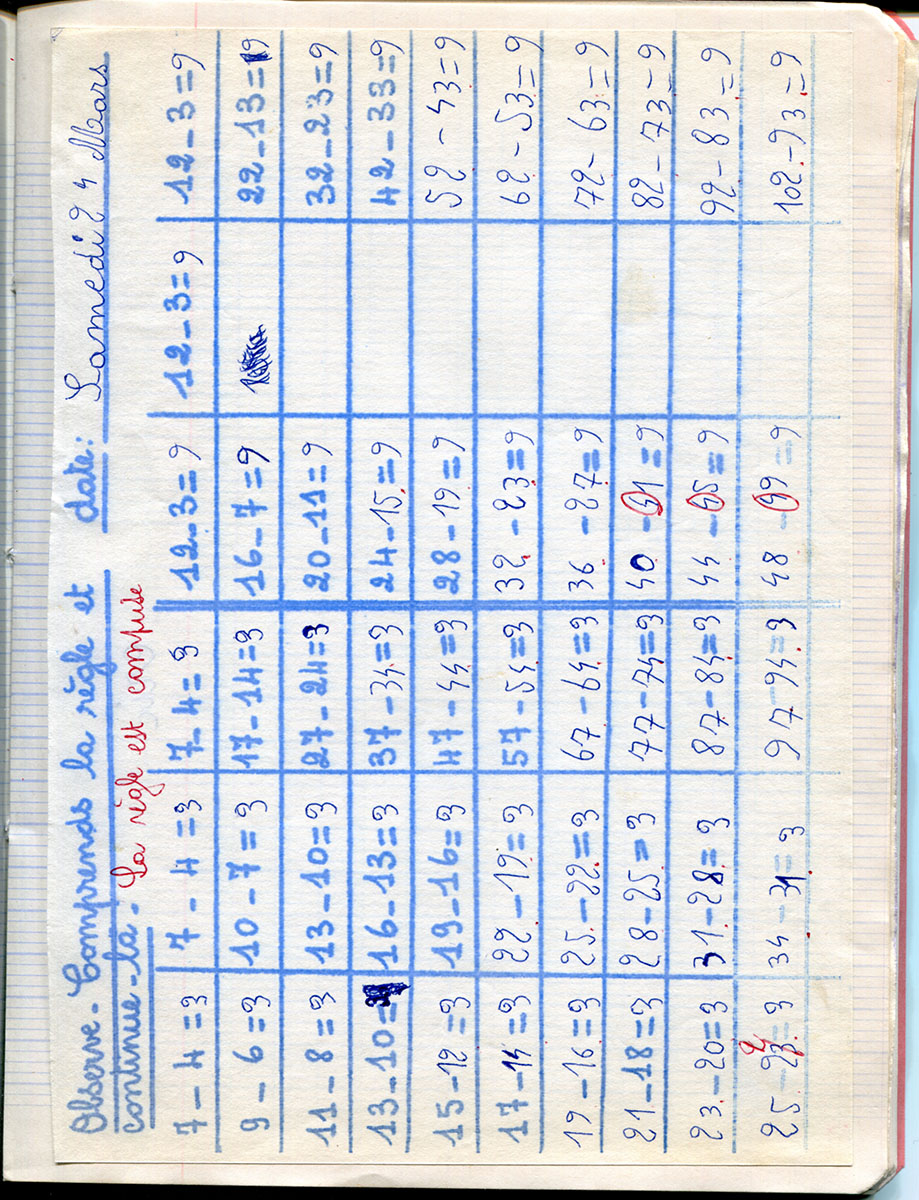 Observe - Comprends la règle et date : Samedi 24 Mars
continue-la. La règle est comprise
7 - 4 = 3 7 - 4 = 3 7 - 4 = 3 12 - 3 = 9 12 - 3 = 9 12 - 3 = 9
9 - 6 = 3 10 - 7 = 3 17 - 14 = 3 16 - 7 = 9 22 - 13 = 9
11 - 8 = 3 13 - 10 = 3 27 - 24 = 3 20 - 11 = 9 32 - 23 = 9
13 - 10 = 16 - 13 = 3 37 - 34 = 3 24 - 15 = 9 42 - 33 = 9
15 - 12 = 3 19 - 16 = 3 47 - 44 = 3 28 - 19 = 9 52 - 43 = 9
17 - 14 = 3 22 - 19 = 3 57 - 54 = 3 32 - 23 = 9 62 - 53 = 9
19 - 16 = 3 25 - 22 = 3 67 - 64 = 3 36 - 27 = 9 72 - 63 = 9
21 - 18 = 3 28 - 25 = 3 77 - 74 = 3 40 - 31 = 9 82 - 73 = 9
23 - 20 = 3 31 - 28 = 3 87 - 84 = 3 44 - 35 = 9 92 - 83 = 9
25 - 22 = 3 34 - 31 = 3 97 - 94 = 3 48 - 39 = 9 102 - 93 = 9